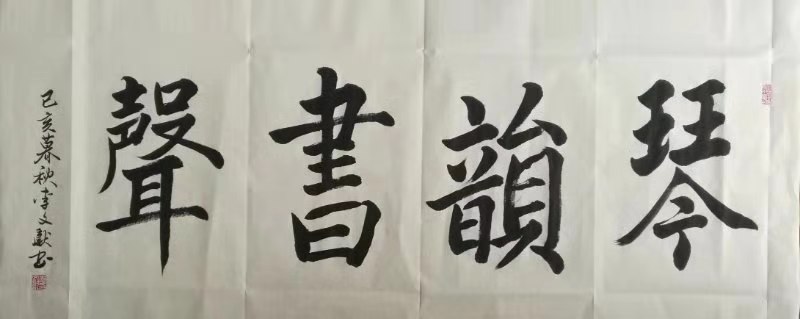 琴韻書聲
己亥暮秋李文獻书